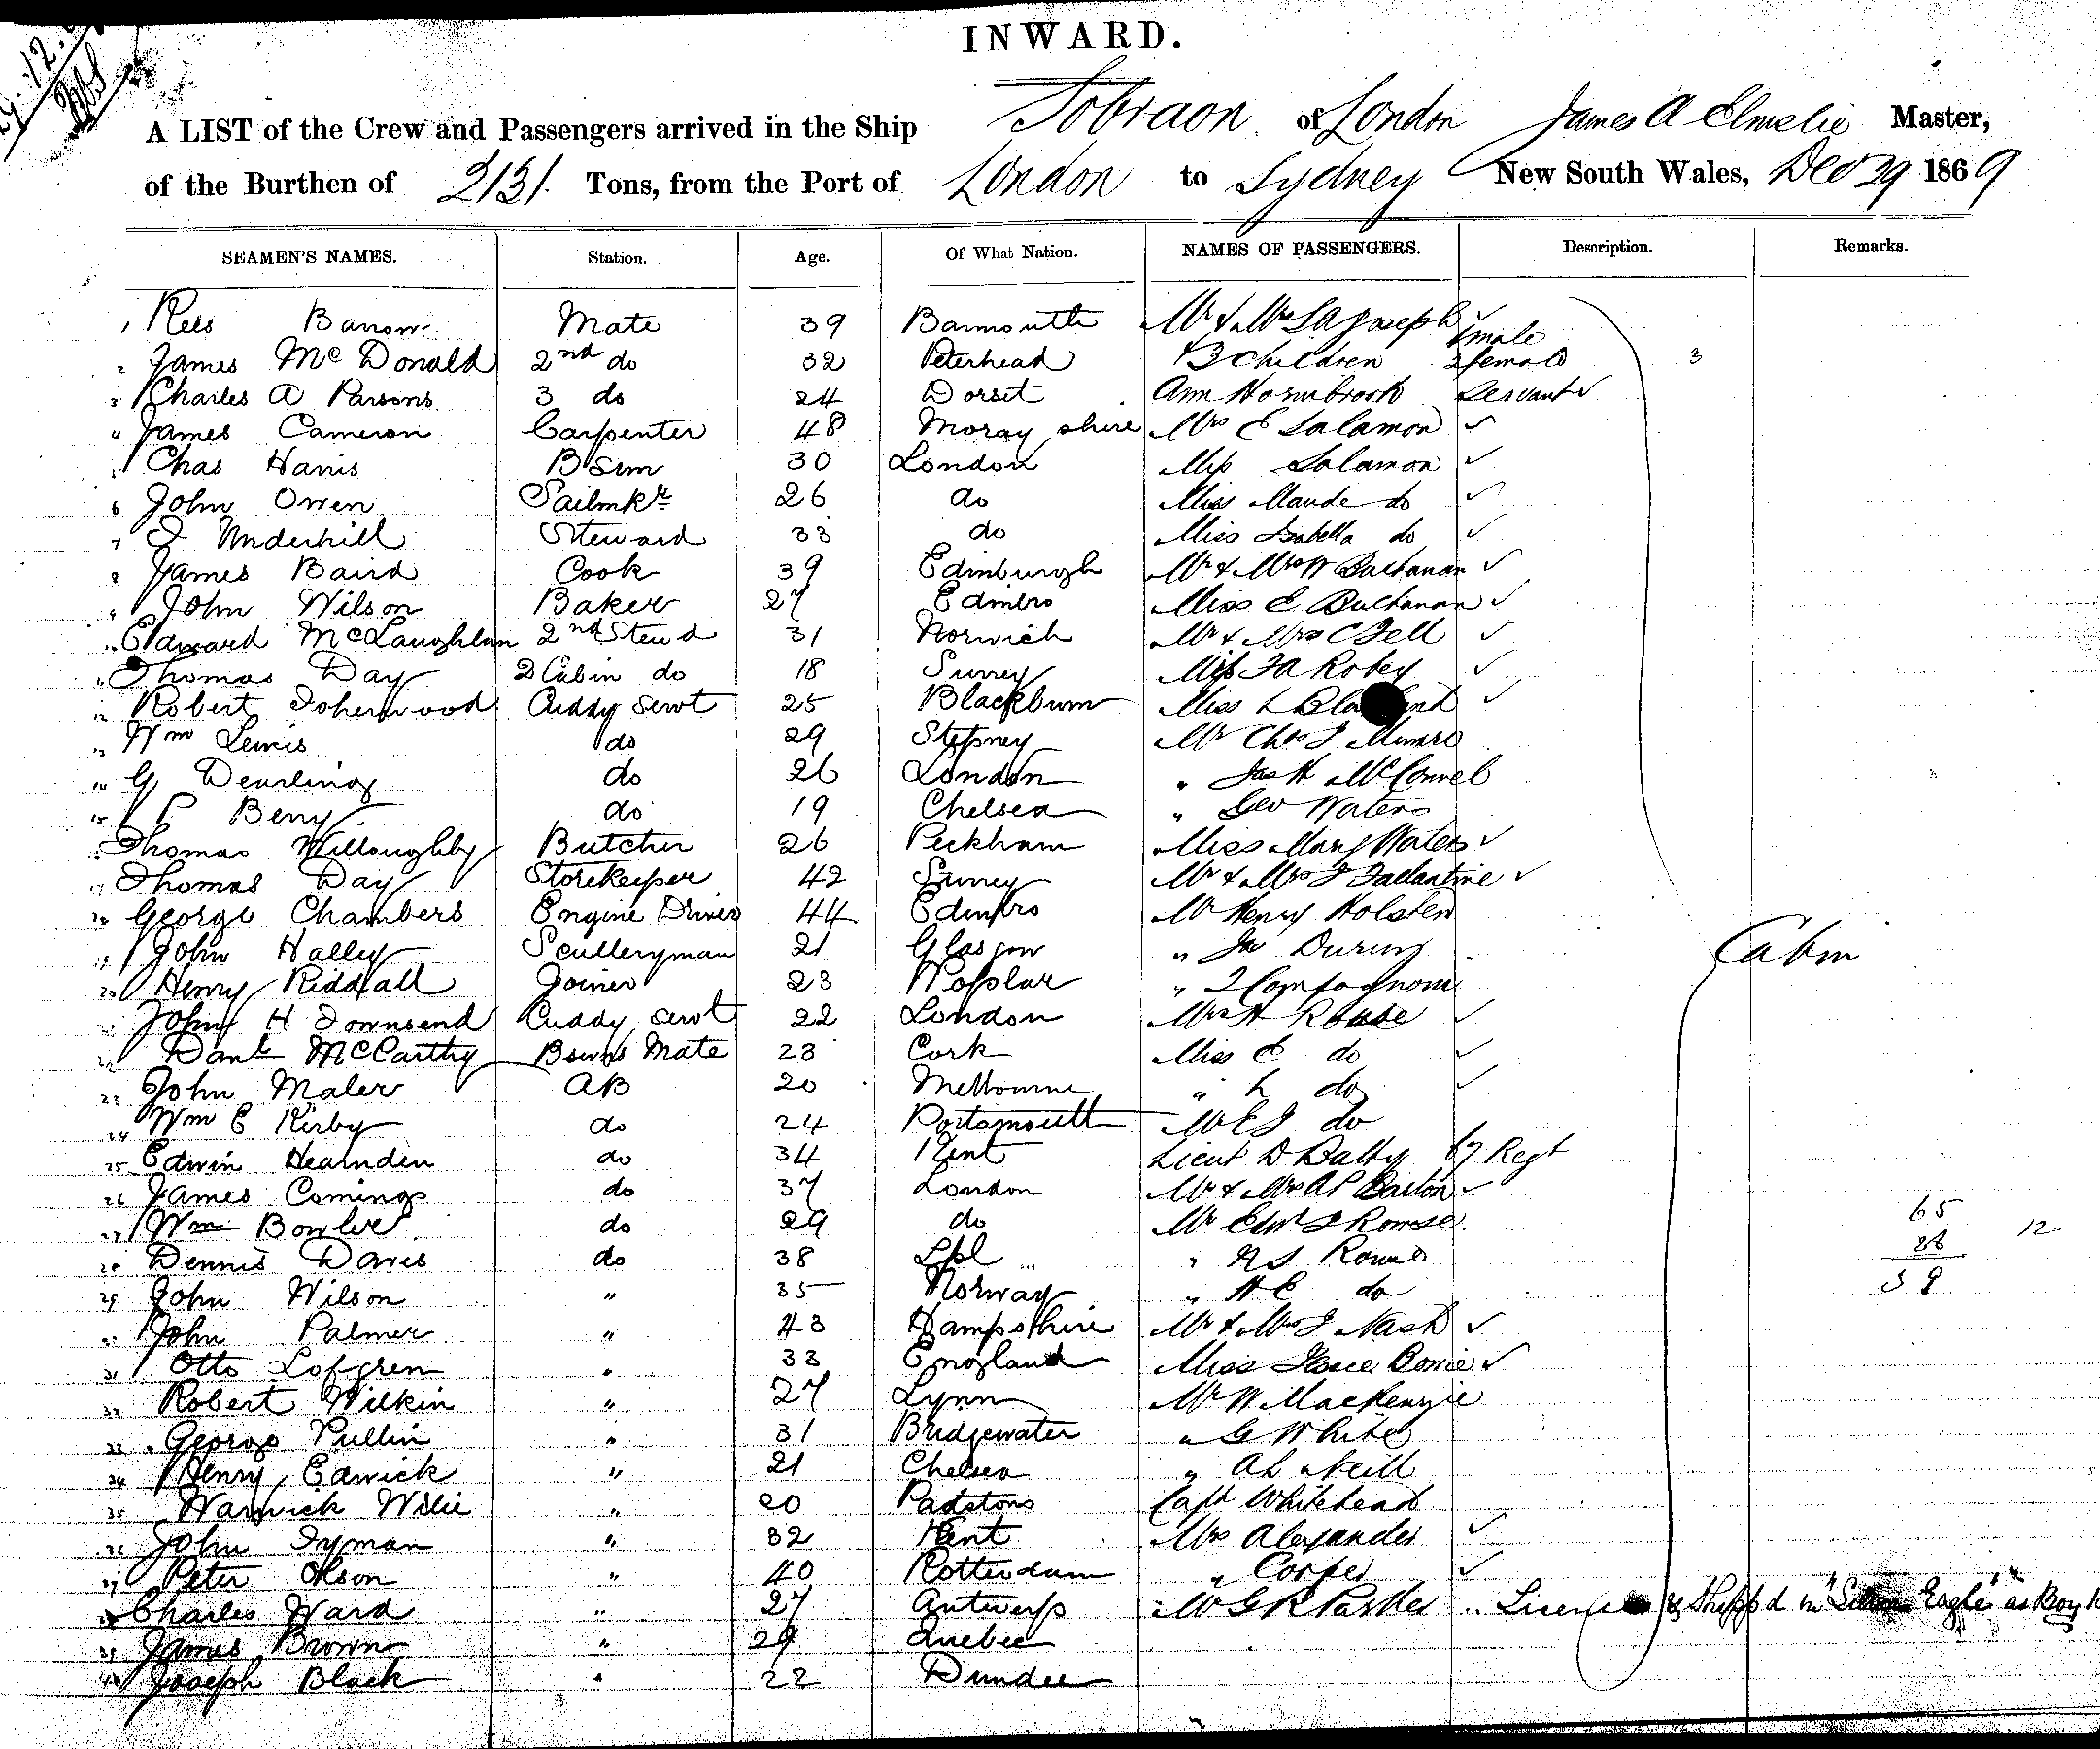 INWARD.
A LIST of the Crew and Passengers arrived in the Ship Sobraon of London James A Elmslie Master,
of the Burthen of 2131 Tons, from the Port of London to Sydney New South Wales, Dec 29 1869
SEAMEN'S NAMES. Station. Age. Of What Nation. NAMES OF PASSENGERS. Description. Remarks.
1 Rees Barrow Mate 39 Barmouth Mr & Mrs S A Joseph ✓
1 male
2 James McDonald 2nd do 32 Peterhead 3 Children 2 female 3
3 Charles A Parsons 3 do 24 Dorset Ann Hornbrook Servant ✓
4 James Cameron Carpenter 48 Moray shire Mrs E Salamon ✓
5 Chas Harris B Swn 30 London Miss Salamon ✓
6 John Owen Sailmkr 26 do Miss Maude do ✓
7 Underhill Steward 33 do Miss Isabella do ✓
8 James Baird Cook 39 Edinburgh Mr & Mrs W Buchanan ✓
9 John Wilson Baker 27 Edinbro Miss E Buchanan ✓
10 Edward McLaughlan 2nd Stewd 31 Norwich Mr & Mrs C Fell ✓
11 Thomas Day 2 Cabin do 18 Surrey Miss F A Robey ✓
12 Robert Isherwood Cuddy Servt 25 Blackburn Miss L ✓
13 Wm Lewis do 29 Stepney Mr Chas J Munro
14 G Dearling do 26 London " Jas H McConnel
15 P Berry do 19 Chelsea " Geo Waters
16 Thomas Willoughby Butcher 26 Peckham Miss Mary Waters ✓
17 Thomas Day Storekeeper 42 Surrey Mr & Mrs J Ballantine ✓
18 George Chambers Engine Driver 44 Edinbro Mr Henry Holsten
19 John Halley Sculleryman 21 Glasgow " During Cabin
20 Henry Riddall Joiner 23 Poplar "
21 John H Townsend Cuddy Servt 22 London Mrs H Rouse ✓
22 Danl McCarthy Bswns Mate 23 Cork Miss E do ✓
23 John Maler AB 20 Melbourne " L do ✓
24 Wm E Kirby do 24 Portsmouth Mr E J do
25 Edwin Hearnden do 34 Kent Lieut D Balby 67 Regt
26 James Comings do 37 London Mr & Mrs A P Barton ✓
27 Wm Bowler do 29 do Mr Edwd J Rowse 65
28 Dennis Davis do 38 Lpl " R S Rowse 26 12
29 John Wilson " 35 Norway " H E do 39
30 John Palmer " 43 Hampshire Mr & Mrs J Nash ✓
31 Otto Lofgren " 33 England Miss Bowie ✓
32 Robert Wilkin " 27 Lynn Mr W Mackenzie
33 George Pullin " 31 Bridgewater " G White
34 Henry Edwick " 21 Chelsea " A L Neill
35 Warwick Wilie " 20 Padstow Capt Whitehead
36 John Tyman " 32 Kent Mrs Alexander ✓
37 Peter Olson " 40 Rotterdam " Cooper ✓
38 Charles Ward " 27 Antwerp Mr G R Parkes Shippd in Eagle" as Boy
39 James Brown " 29 Quebec
40 Joseph Black " 22 Dundee